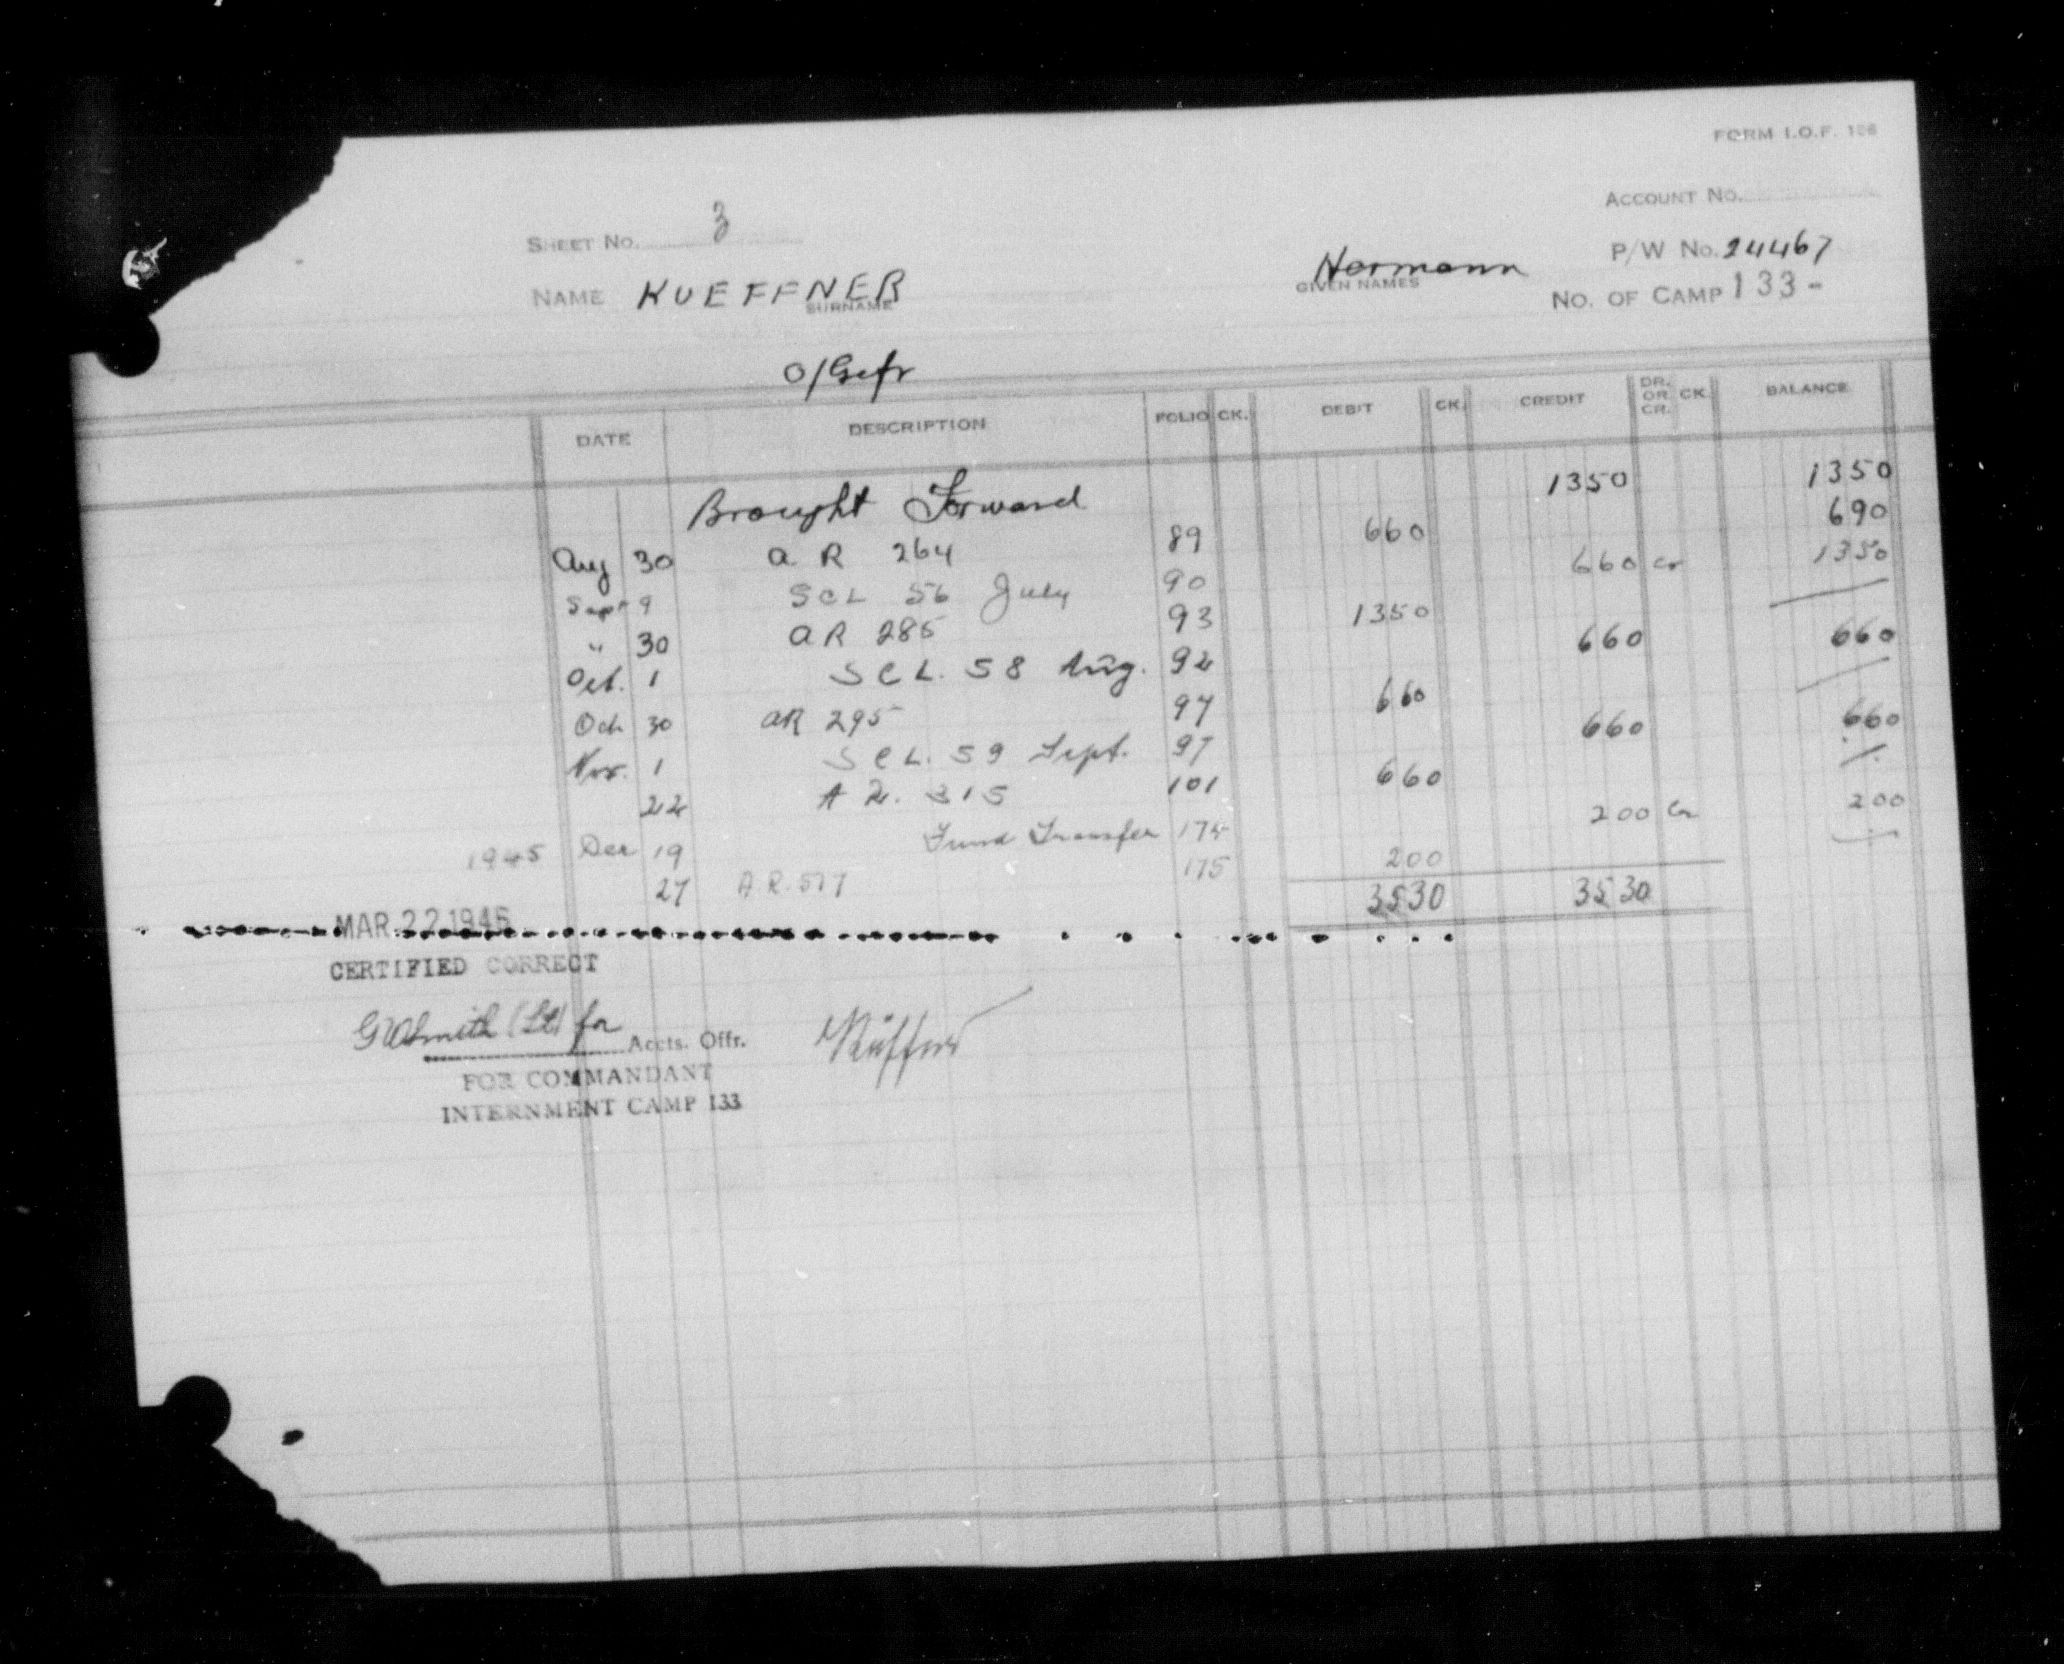 FORM I.O.F. 156
ACCOUNT No.
SHEET No. 3
P/W No. 24467
NAME KUEFFNER
SURNAME
Hermann
GIVEN NAMES
No. OF CAMP 133-
O/Gefr
DATE DESCRIPTION FOLIO CK. DEBIT CK. CREDIT DR. OR CR. CK. BALANCE
Brought Forward 1350 1350
Aug 30 A R 264 89 660 690
Sept 9 SCL 56 July 90 660 cr 1350
" 30 A R 285 93 1350
Oct. 1 SCL. 58 Aug. 92 660 660
Oct 30 AR 295 97 660
Nov. 1 SCL. 59 Sept. 97 660 660
22 A R. 315 101 660
1945 Dec 19 Fund Transfer 175 200 Cr 200
27 A.R. 577 175 200
3530 3530
MAR 22 1946
CERTIFIED CORRECT
Smith (Lt) for Accts. Offr.
Küffner
FOR COMMANDANT
INTERNMENT CAMP 133